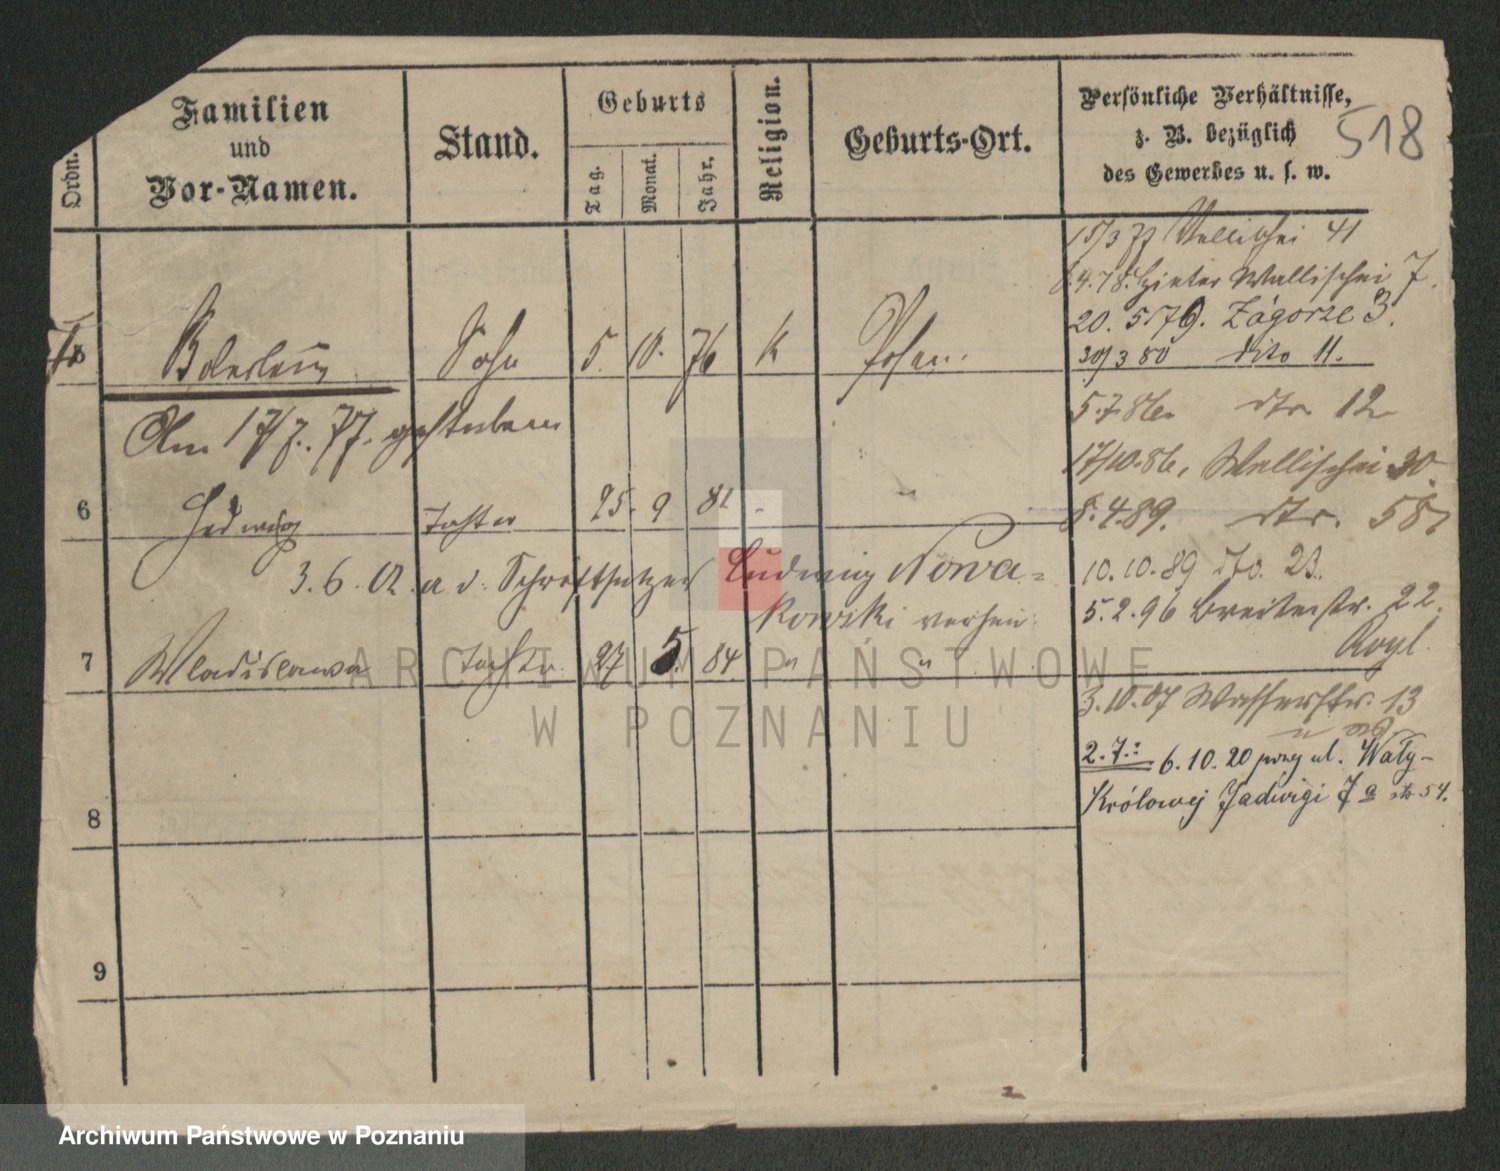 Ordn.
Familien
und
Vor-Namen.
Stand.
Geburts
Tag.
Monat.
Jahr.
Religion.
Geburts-Ort.
Persönliche Verhältnisse,
z. B. bezüglich
des Gewerbes u. s. w.
518
15/3 77 Wallischei 41
8.4.78. Hinter Wallischei 7.
20. 5. 79. Zágorze 3.
30/3 80 dito 11.
Boleslaus Sohn 5. 10. 76 k Posen.
Am 17/7. 77. gestorben
5.7.86. dto 12
17/10.86, Wallischei 30.
6 Hedwig Tochter 25. 9 81 - "
8.4.89. dto. 58,
3.6.02. a. d. Schriftsetzer Ludwig Nowa=
kowski verh
10.10.89 dto. 23.
5.2.96 Breitestr. 22.
7 Wladislawa Tochter 27 5. 84 " "
3.10.07 Wasserstr. 13
2.7.: 6.10.20 przy ul. Wały-
Królowej Jadwigi 7a str 54.
8
9
ARCHIWUM PAŃSTWOWE
W POZNANIU
Archiwum Państwowe w Poznaniu